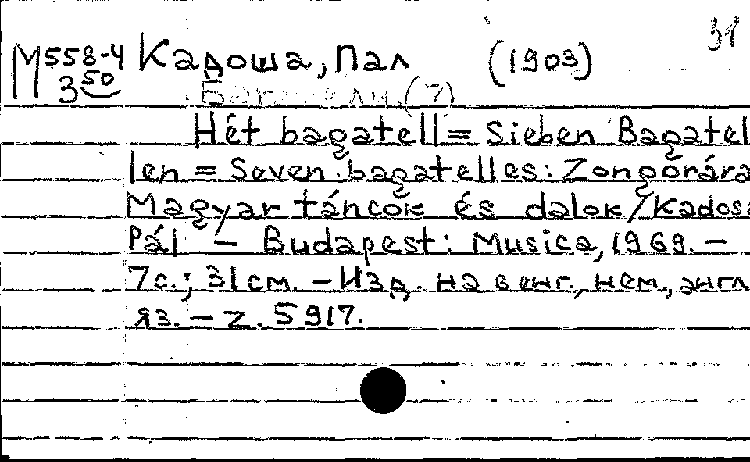 31
М 558-4 Кадоша, Пал (1903)
3 50 Багатели (7)
Hét bagatell = Sieben Bagatel
len = Seven bagatelles: Zongórára
Magyar táncok és dalok / Kadosa
Pál – Budapest: Musica, 1969. –
7с.; 31см. – Изд. на венг., нем., англ
яз. – Z. 5917.